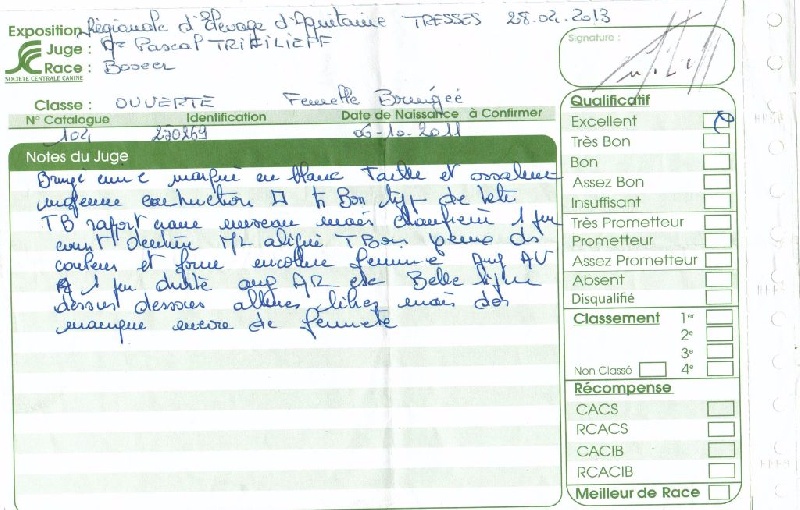 Exposition Régionale d'Élevage d'Aquitaine TRESSES 28.04.2013
Juge : Mr Pascal
Race : Boxer
SOCIÉTÉ CENTRALE CANINE
Signature :
Classe : OUVERTE Femelle Bringée
N° Catalogue Identification Date de Naissance à Confirmer
104 230269 06-10-2011
Notes du Juge
Bringé marqué en blanc Taille et ossature
moyenne construction Bon type de tête
TB raport crane museau mais chanfrein 1 peu
court M/L TBon
couleur et forme encolure Ang AV
1 peu ang AR Belle ligne
dessus dessous allures mais dos
manque encore de fermeté
Qualificatif
Excellent
Très Bon
Bon
Assez Bon
Insuffisant
Très Prometteur
Prometteur
Assez Prometteur
Absent
Disqualifié
Classement 1er
2e
3e
Non Classé 4e
Récompense
CACS
RCACS
CACIB
RCACIB
Meilleur de Race